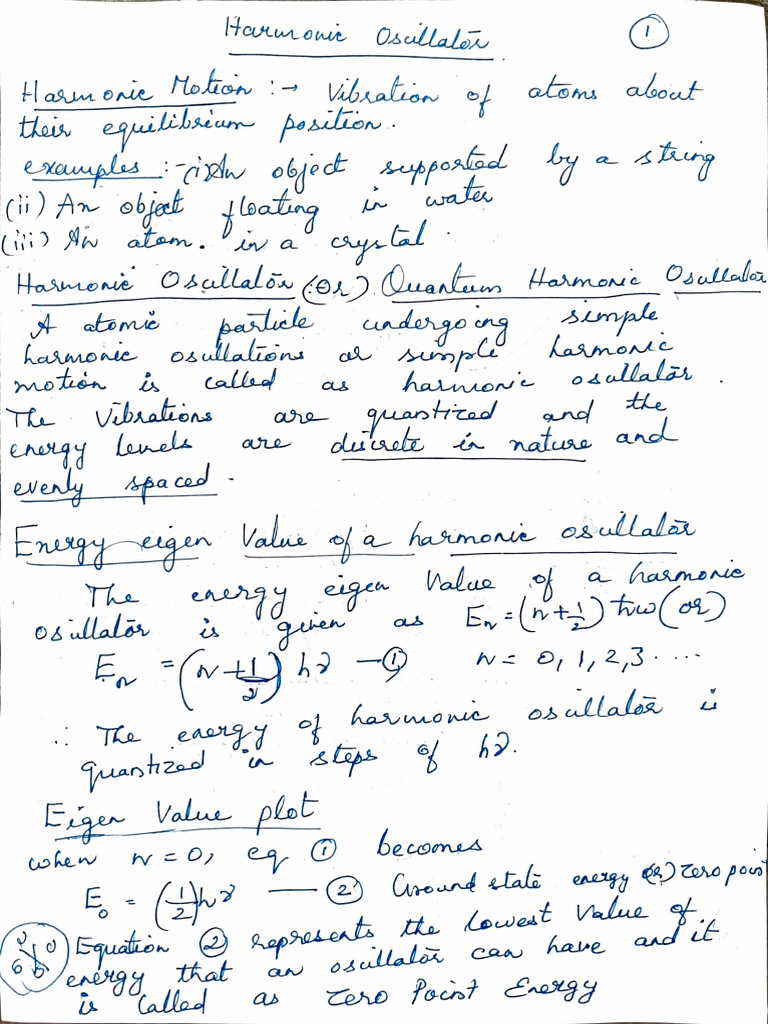 Harmonic Oscillator
1
Harmonic Motion :→ Vibration of atoms about
their equilibrium position.
examples :- (i) An object supported by a string
(ii) An object floating in water
(iii) An atom. in a crystal.
Harmonic Oscillator (Or) Quantum Harmonic Oscillator
A atomic particle undergoing simple
harmonic oscillations or simple harmonic
motion is called as harmonic oscillator.
The Vibrations are quantized and the
energy levels are discrete in nature and
evenly spaced.
Energy eigen Value of a harmonic oscillator
The energy eigen Value of a harmonic
oscillator is given as Eₙ = (n + 1/2) ħω (or)
Eₙ = (n + 1/2) hν —① n = 0, 1, 2, 3 ....
∴ The energy of harmonic oscillator is
quantized in steps of hν.
Eigen Value plot
when n = 0, eq ① becomes
E₀ = (1/2) hν —② Ground state energy (or) Zero point
Equation ② represents the lowest Value of
energy that an oscillator can have and it
is called as Zero Point Energy